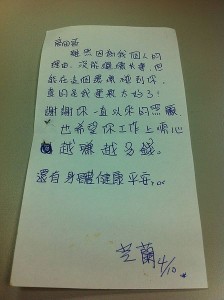 雖然因為我個人的
理由,沒能繼續長壽,但
能在這個業界碰到你,
真的是我運氣太好了!
謝謝你一直以來的照顧,
也希望你工作上開心
越賺越多錢。
還有身體健康平安,
芝蘭 4/10